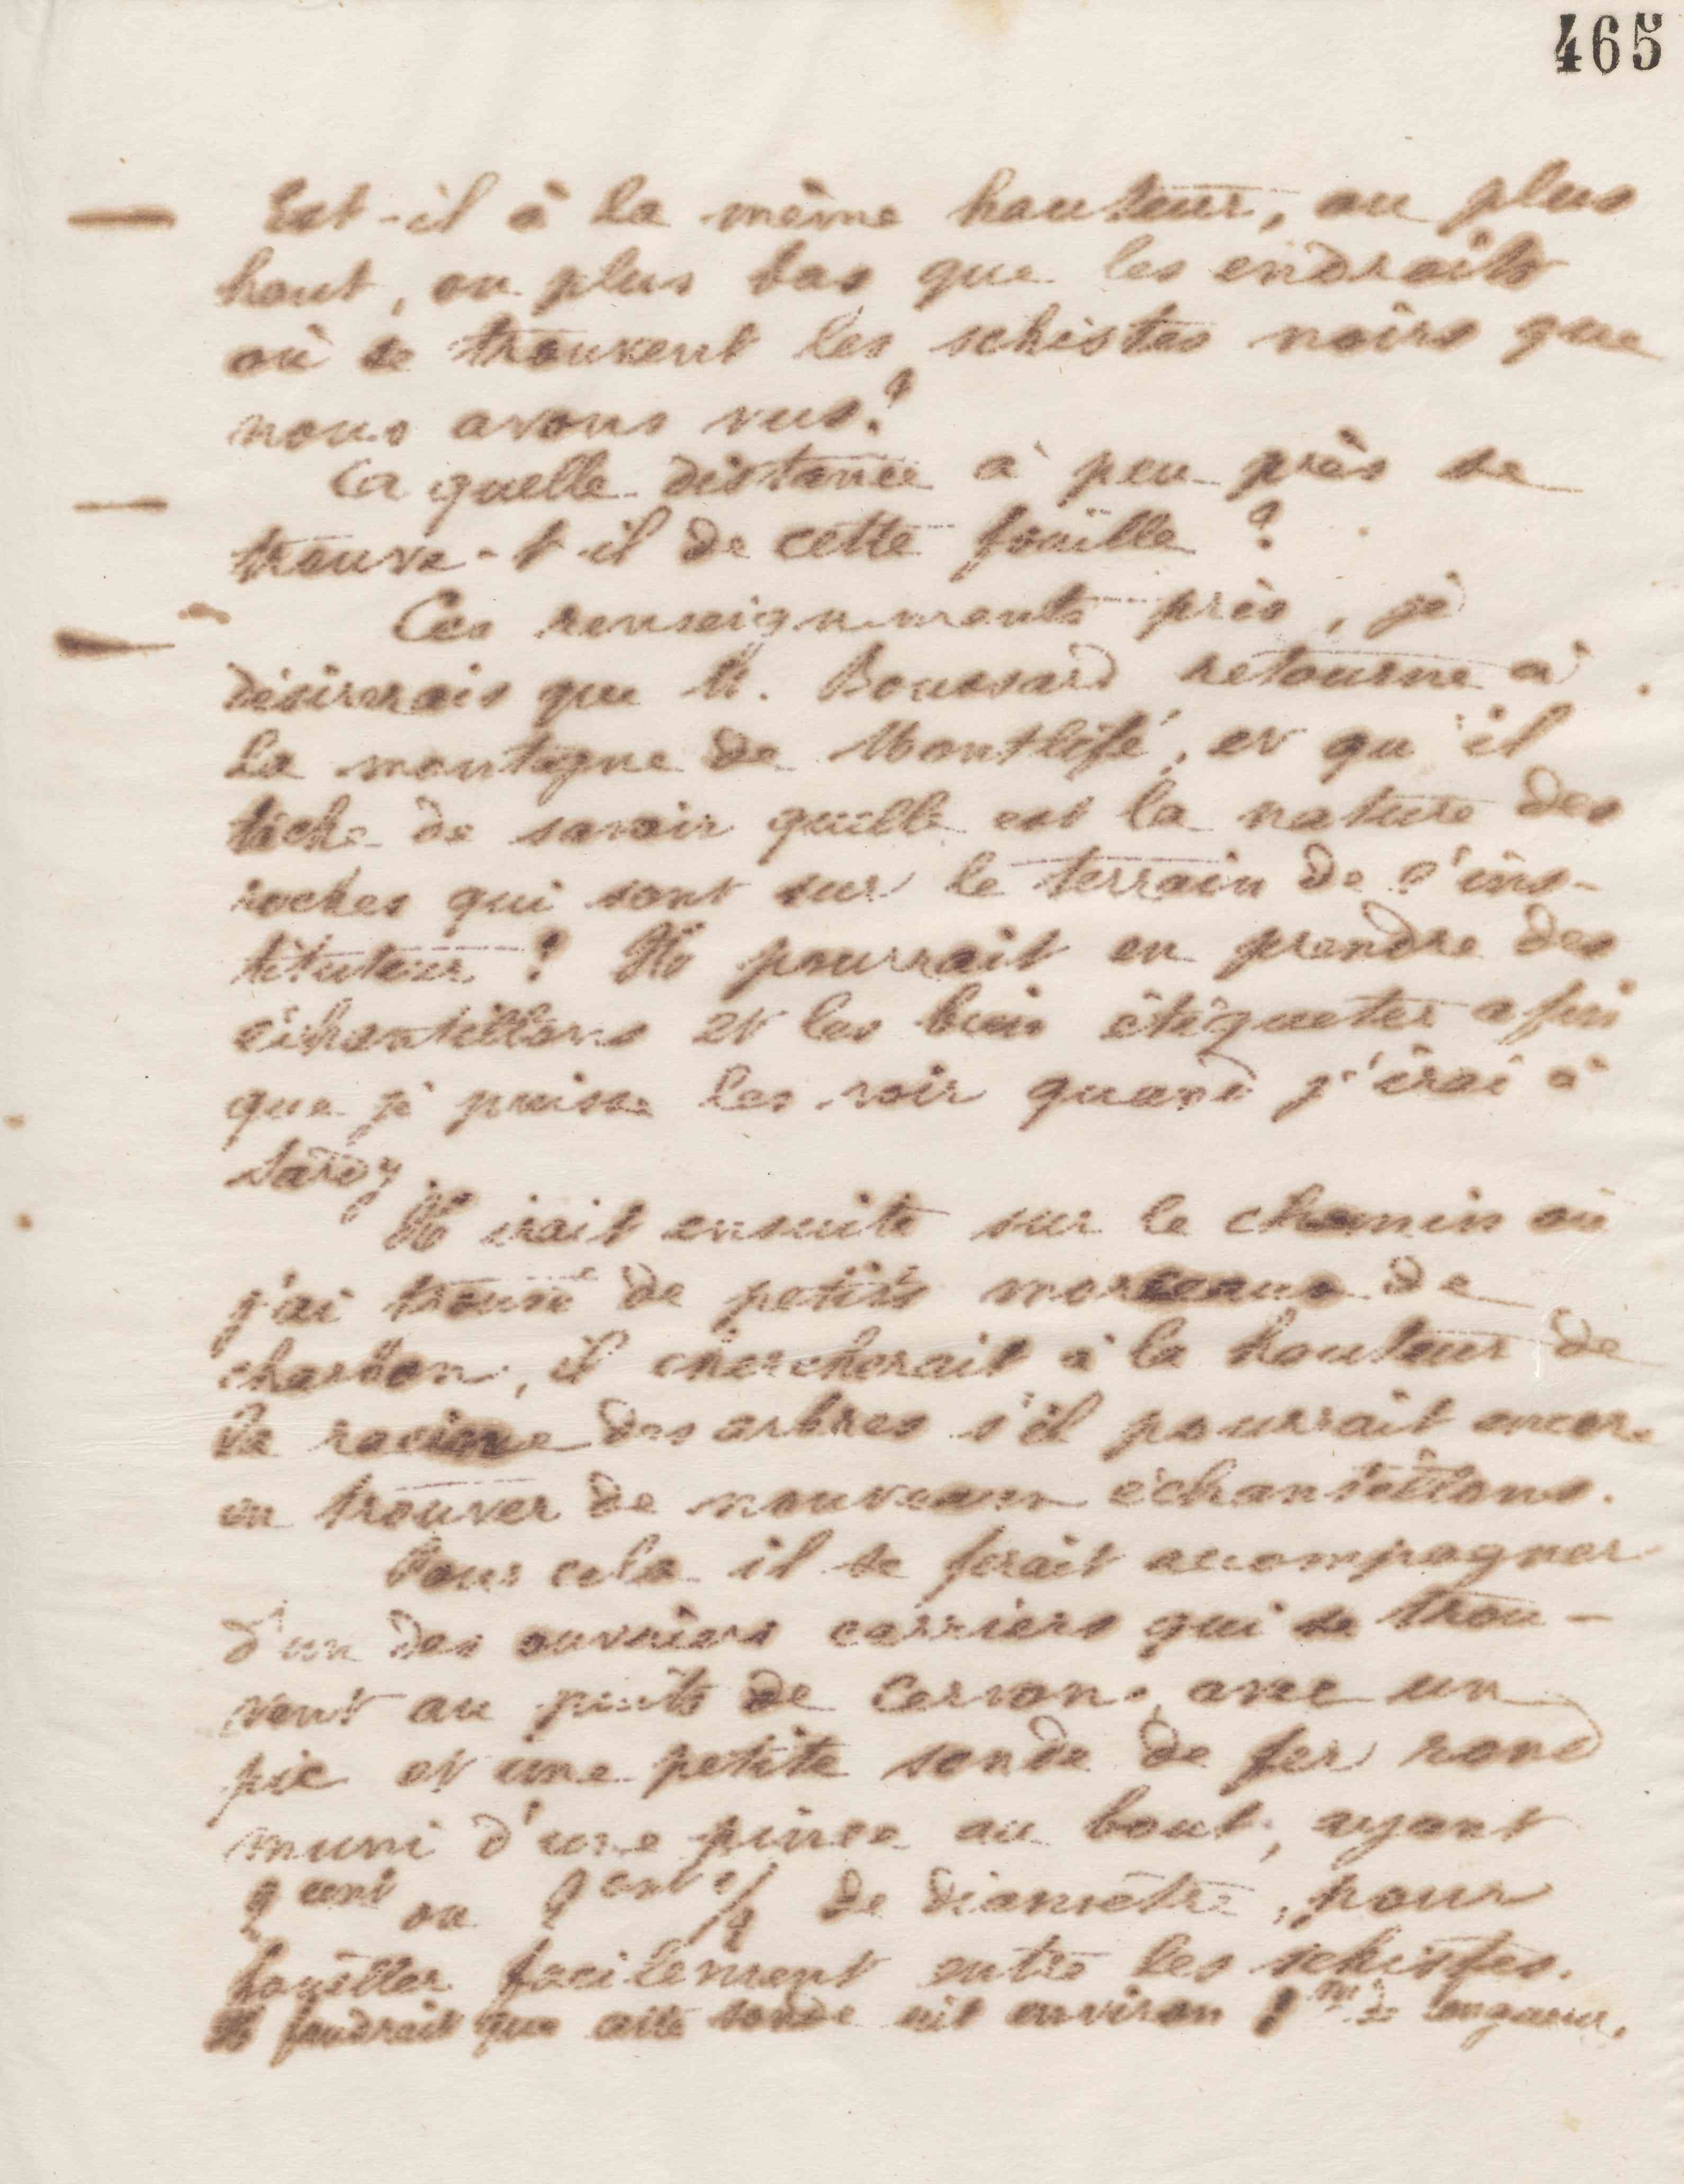 465
— Est-il à la même hauteur, ou plus
haut, ou plus bas que les endroits
où se trouvent les schistes noirs que
nous avons vus ?
— A quelle distance à peu près se
trouve-t-il de cette fouille ?
— Ces renseignements pris, je
désirerais que M. Boussard retourne à
la montagne de Montlifé, et qu'il
tâche de savoir quelle est la nature des
roches qui sont sur le terrain de l'ins-
tituteur ? Il pourrait en prendre des
échantillons et les bien étiqueter afin
que je puisse les voir quand j'irai à
Sardy.
Il irait ensuite sur le chemin où
j'ai trouvé de petits morceaux de
charbon, il chercherait à la hauteur de
la racine des arbres s'il pourrait encore
en trouver de nouveaux échantillons.
Pour cela il se ferait accompagner
d'un des ouvriers carriers qui se trou-
vent au puits de Cervon, avec un
pic et une petite sonde de fer rond
muni d'une pince au bout, ayant
2 cent ou 2 cent 1/2 de diamètre, pour
fouiller facilement entre les schistes.
Il faudrait que cette sonde ait environ 1m de longueur.